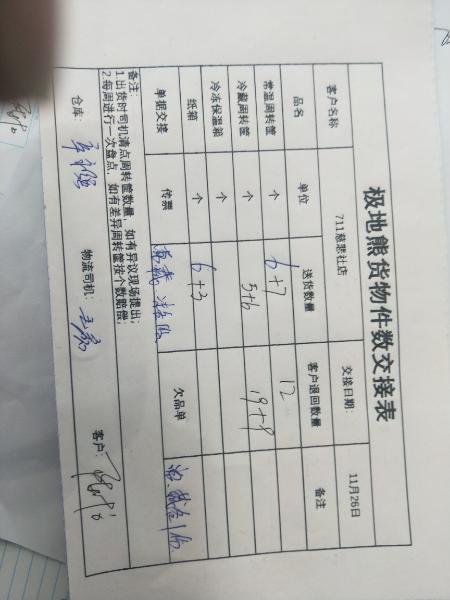 极地熊货物件数交接表
客户名称 711慈悲社店 交接日期: 11月26日
品名 单位 送货数量 客户退回数量 备注
常温周转筐 个 6+7 12
冷藏周转筐 个 5+6 19+9
冷冻保温箱 个
纸箱 个 6+3
单据交接 传票 欠品单
备注:
1.出货时司机清点周转筐数量,如有异议现场提出;
2.每周进行一次盘点,如有差异周转筐按个数赔偿;
仓库: 物流司机: 客户: